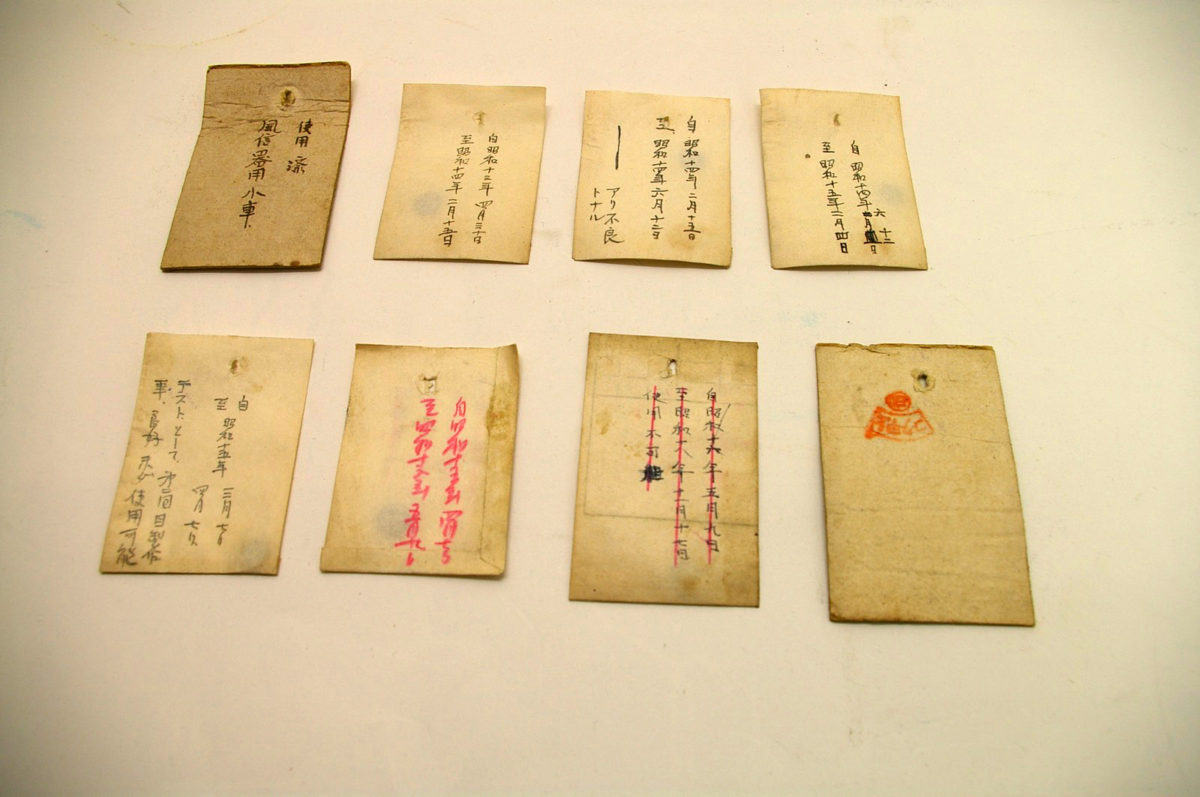 使用済
風信器用小車
自昭和十三年四月三十日
至昭和十四年二月十五日
自昭和十四年二月十五日
至昭和十四年六月十二日
アリ不良
トナル
自昭和十四年六月十二日
至昭和十五年二月四日
自
至昭和十五年三月七日
四月七日
テストとして、第二回目製作
車、良好
使用可能
自昭和十五年四月七日
至昭和十六年五月九日
自昭和十六年五月九日
至昭和十六年十二月十七日
使用不可能